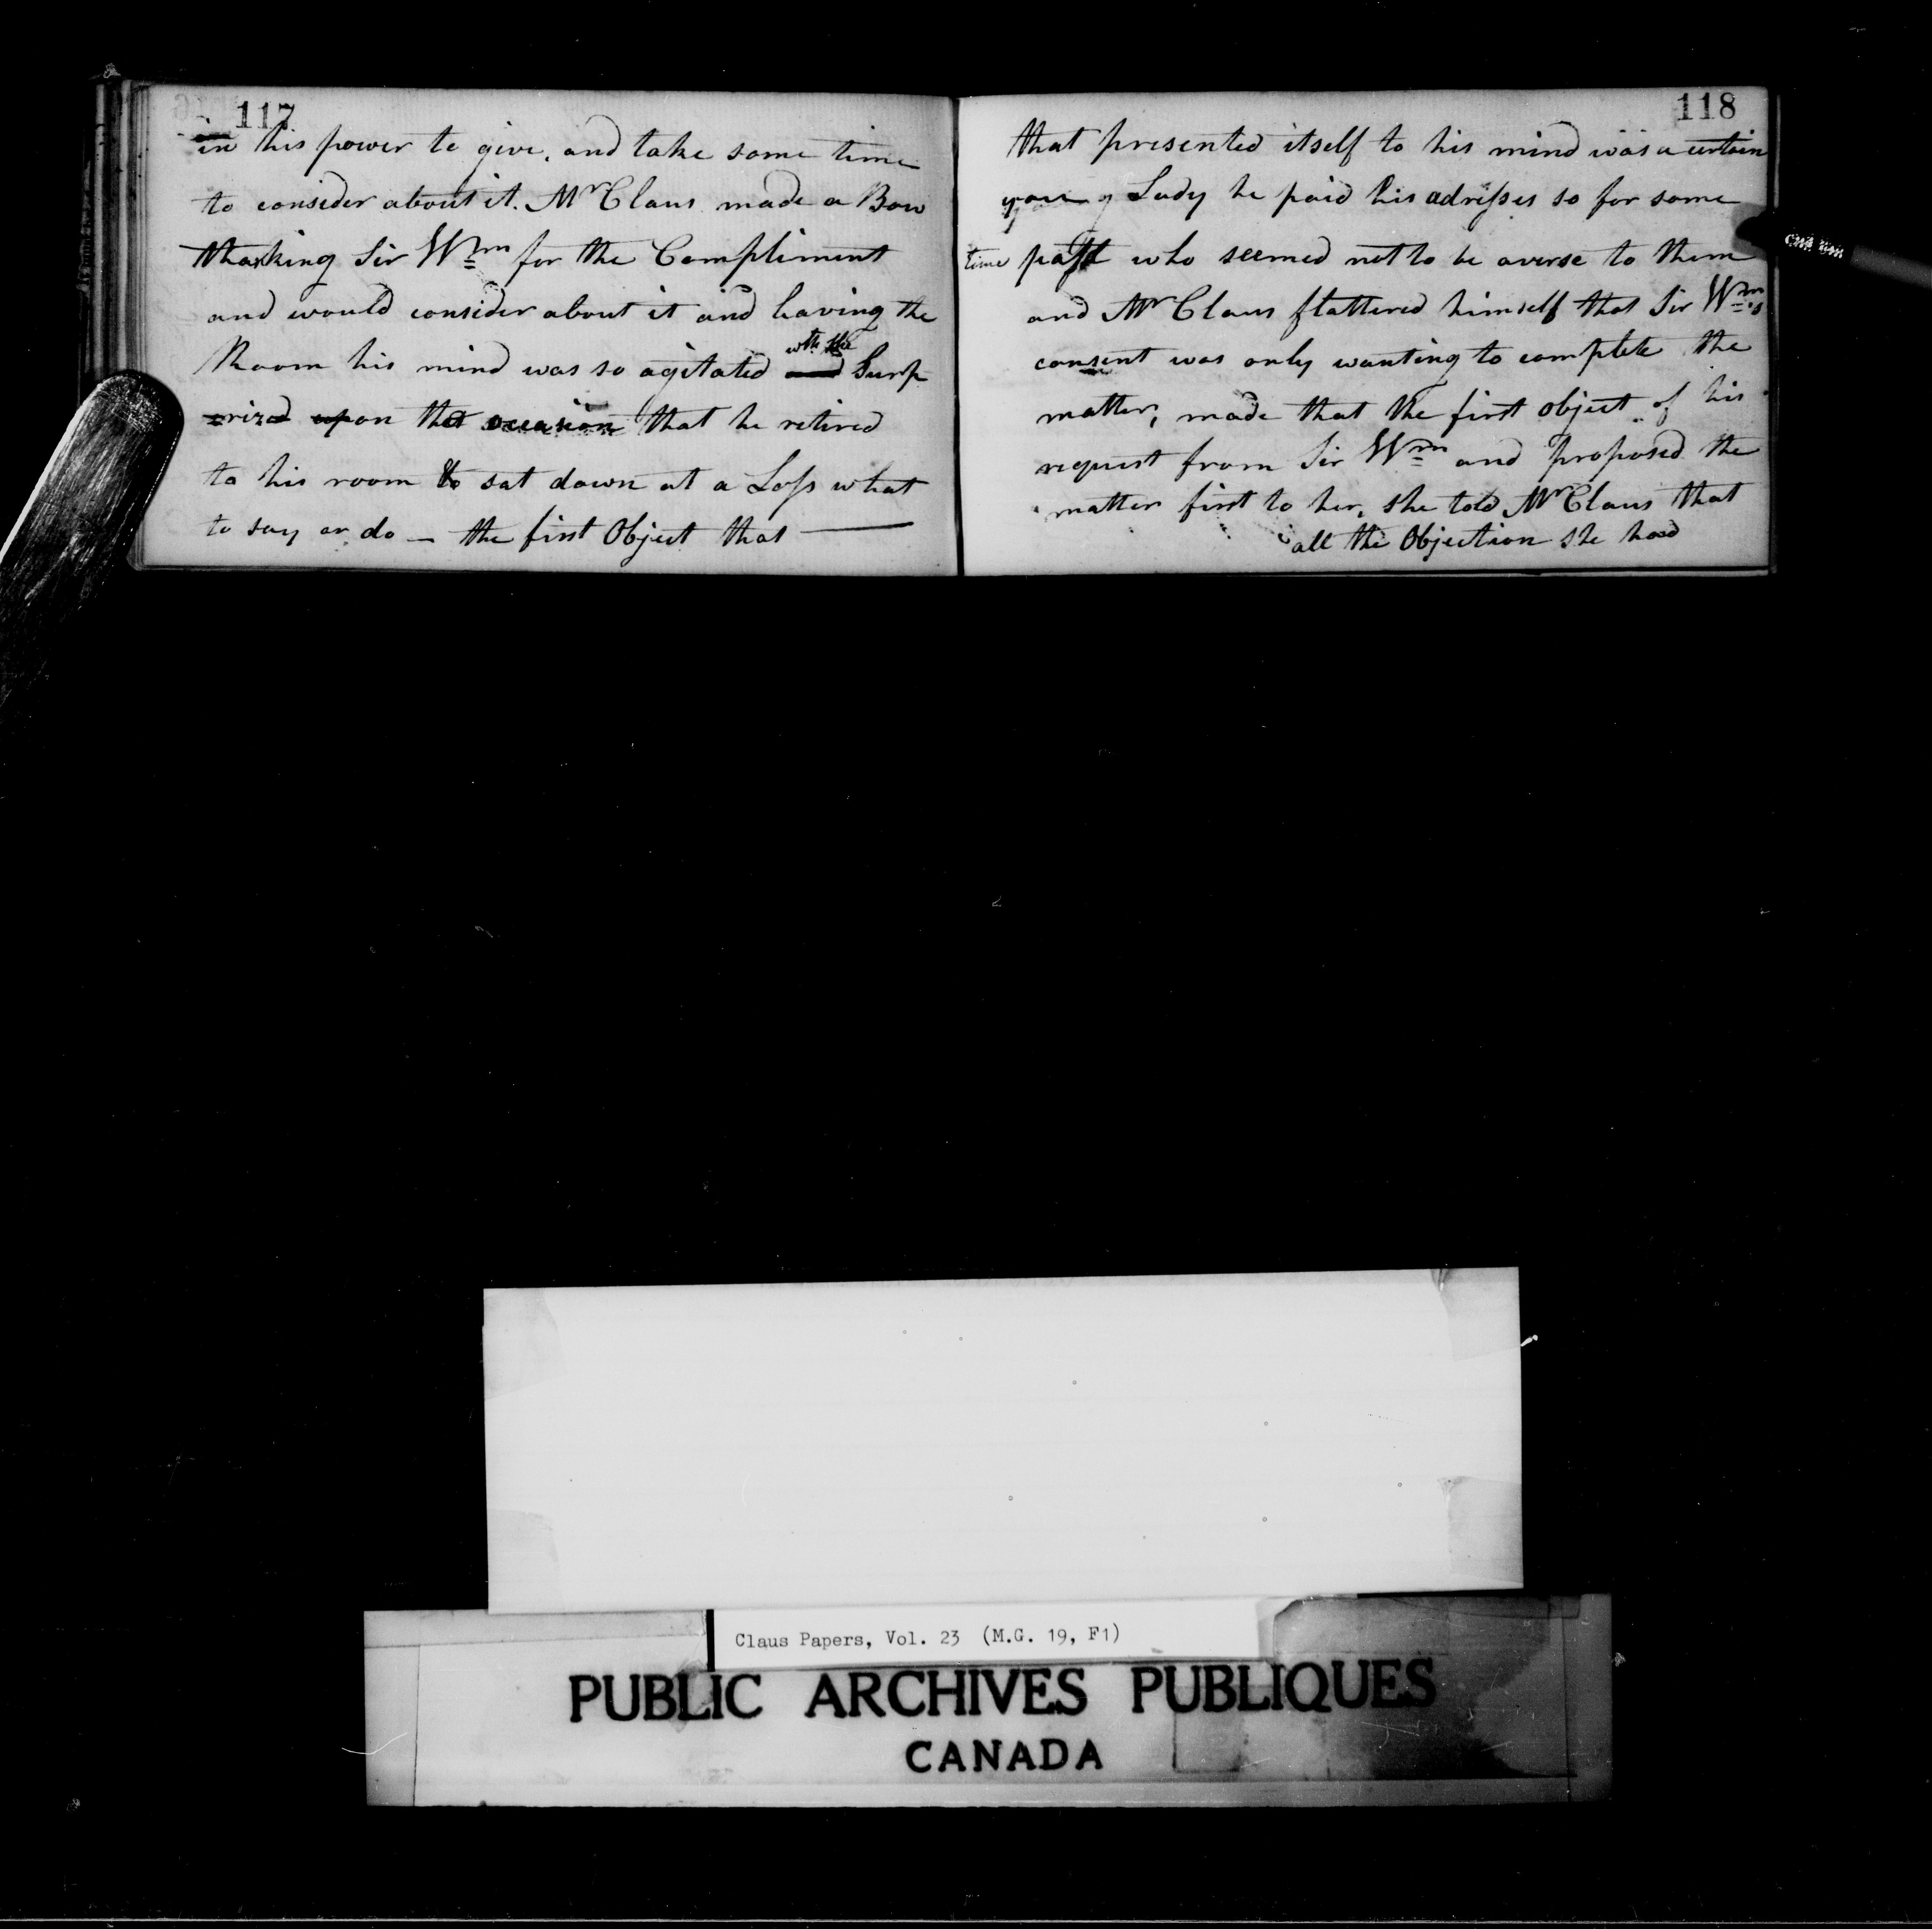 117
in his power to give, and take some time
to consider about it. Mr Claus made a Bow
thanking Sir Wm for the Compliment
and would consider about it and leaving the
Room his mind was so agitated and with the Surp
rized upon that occasion that he retired
to his room & sat down at a Loss what
to say or do — the first Object that —
118
that presented itself to his mind was a certain
young Lady he paid his adresses so for some
time past who seemed not to be averse to them
and Mr Claus flattered himself that Sir Wm's
consent was only wanting to complete the
matter, made that the first object of his
request from Sir Wm and proposed the
matter first to her, she told Mr Claus that
all the Objection she had
Claus Papers, Vol. 23 (M.G. 19, F1)
PUBLIC ARCHIVES PUBLIQUES
CANADA